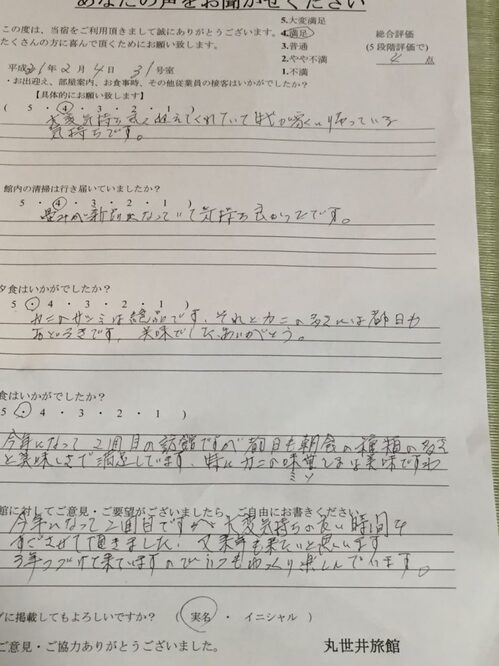 あなたの声をお聞かせください
この度は、当宿をご利用頂きまして誠にありがとうございます。
たくさんの方に喜んで頂くためにお願い致します。
5.大変満足
4.満足
3.普通
2.やや不満
1.不満
総合評価
(5段階評価で)
4 点
平成31年2月4日 31号室
・お出迎え、部屋案内、お食事時、その他従業員の接客はいかがでしたか?
【具体的にお願い致します】
(5・4・3・2・1)
大変気持ち良く迎えてくれていて我が家に帰っている
気持ちです。
館内の清掃は行き届いていましたか?
5・4・3・2・1)
畳みが新品になっていて気持ち良かったです。
夕食はいかがでしたか?
5・・3・2・1)
カニのサシミは絶品です、それとカニの多さには都日も
おどろきです、美味でした、ありがとう。
食はいかがでしたか?
5・・4・3・2・1)
今年になって2回目の訪館ですが毎日も朝食の種類の多さ
と美味しさで満足しています、特にカニの味噌しるは美味ですね
ミソ
館に対してご意見・ご要望がございましたら、ご自由にお書きください
今年になって2回目ですが大変気持ちの良い時間を
すごさせて頂きました、又来年も来たいと思います
3年つづけて来ていますのでいつもゆっくり楽しんでいます。
グに掲載してもよろしいですか? (実名 ・ イニシャル )
ご意見・ご協力ありがとうございました。
丸世井旅館